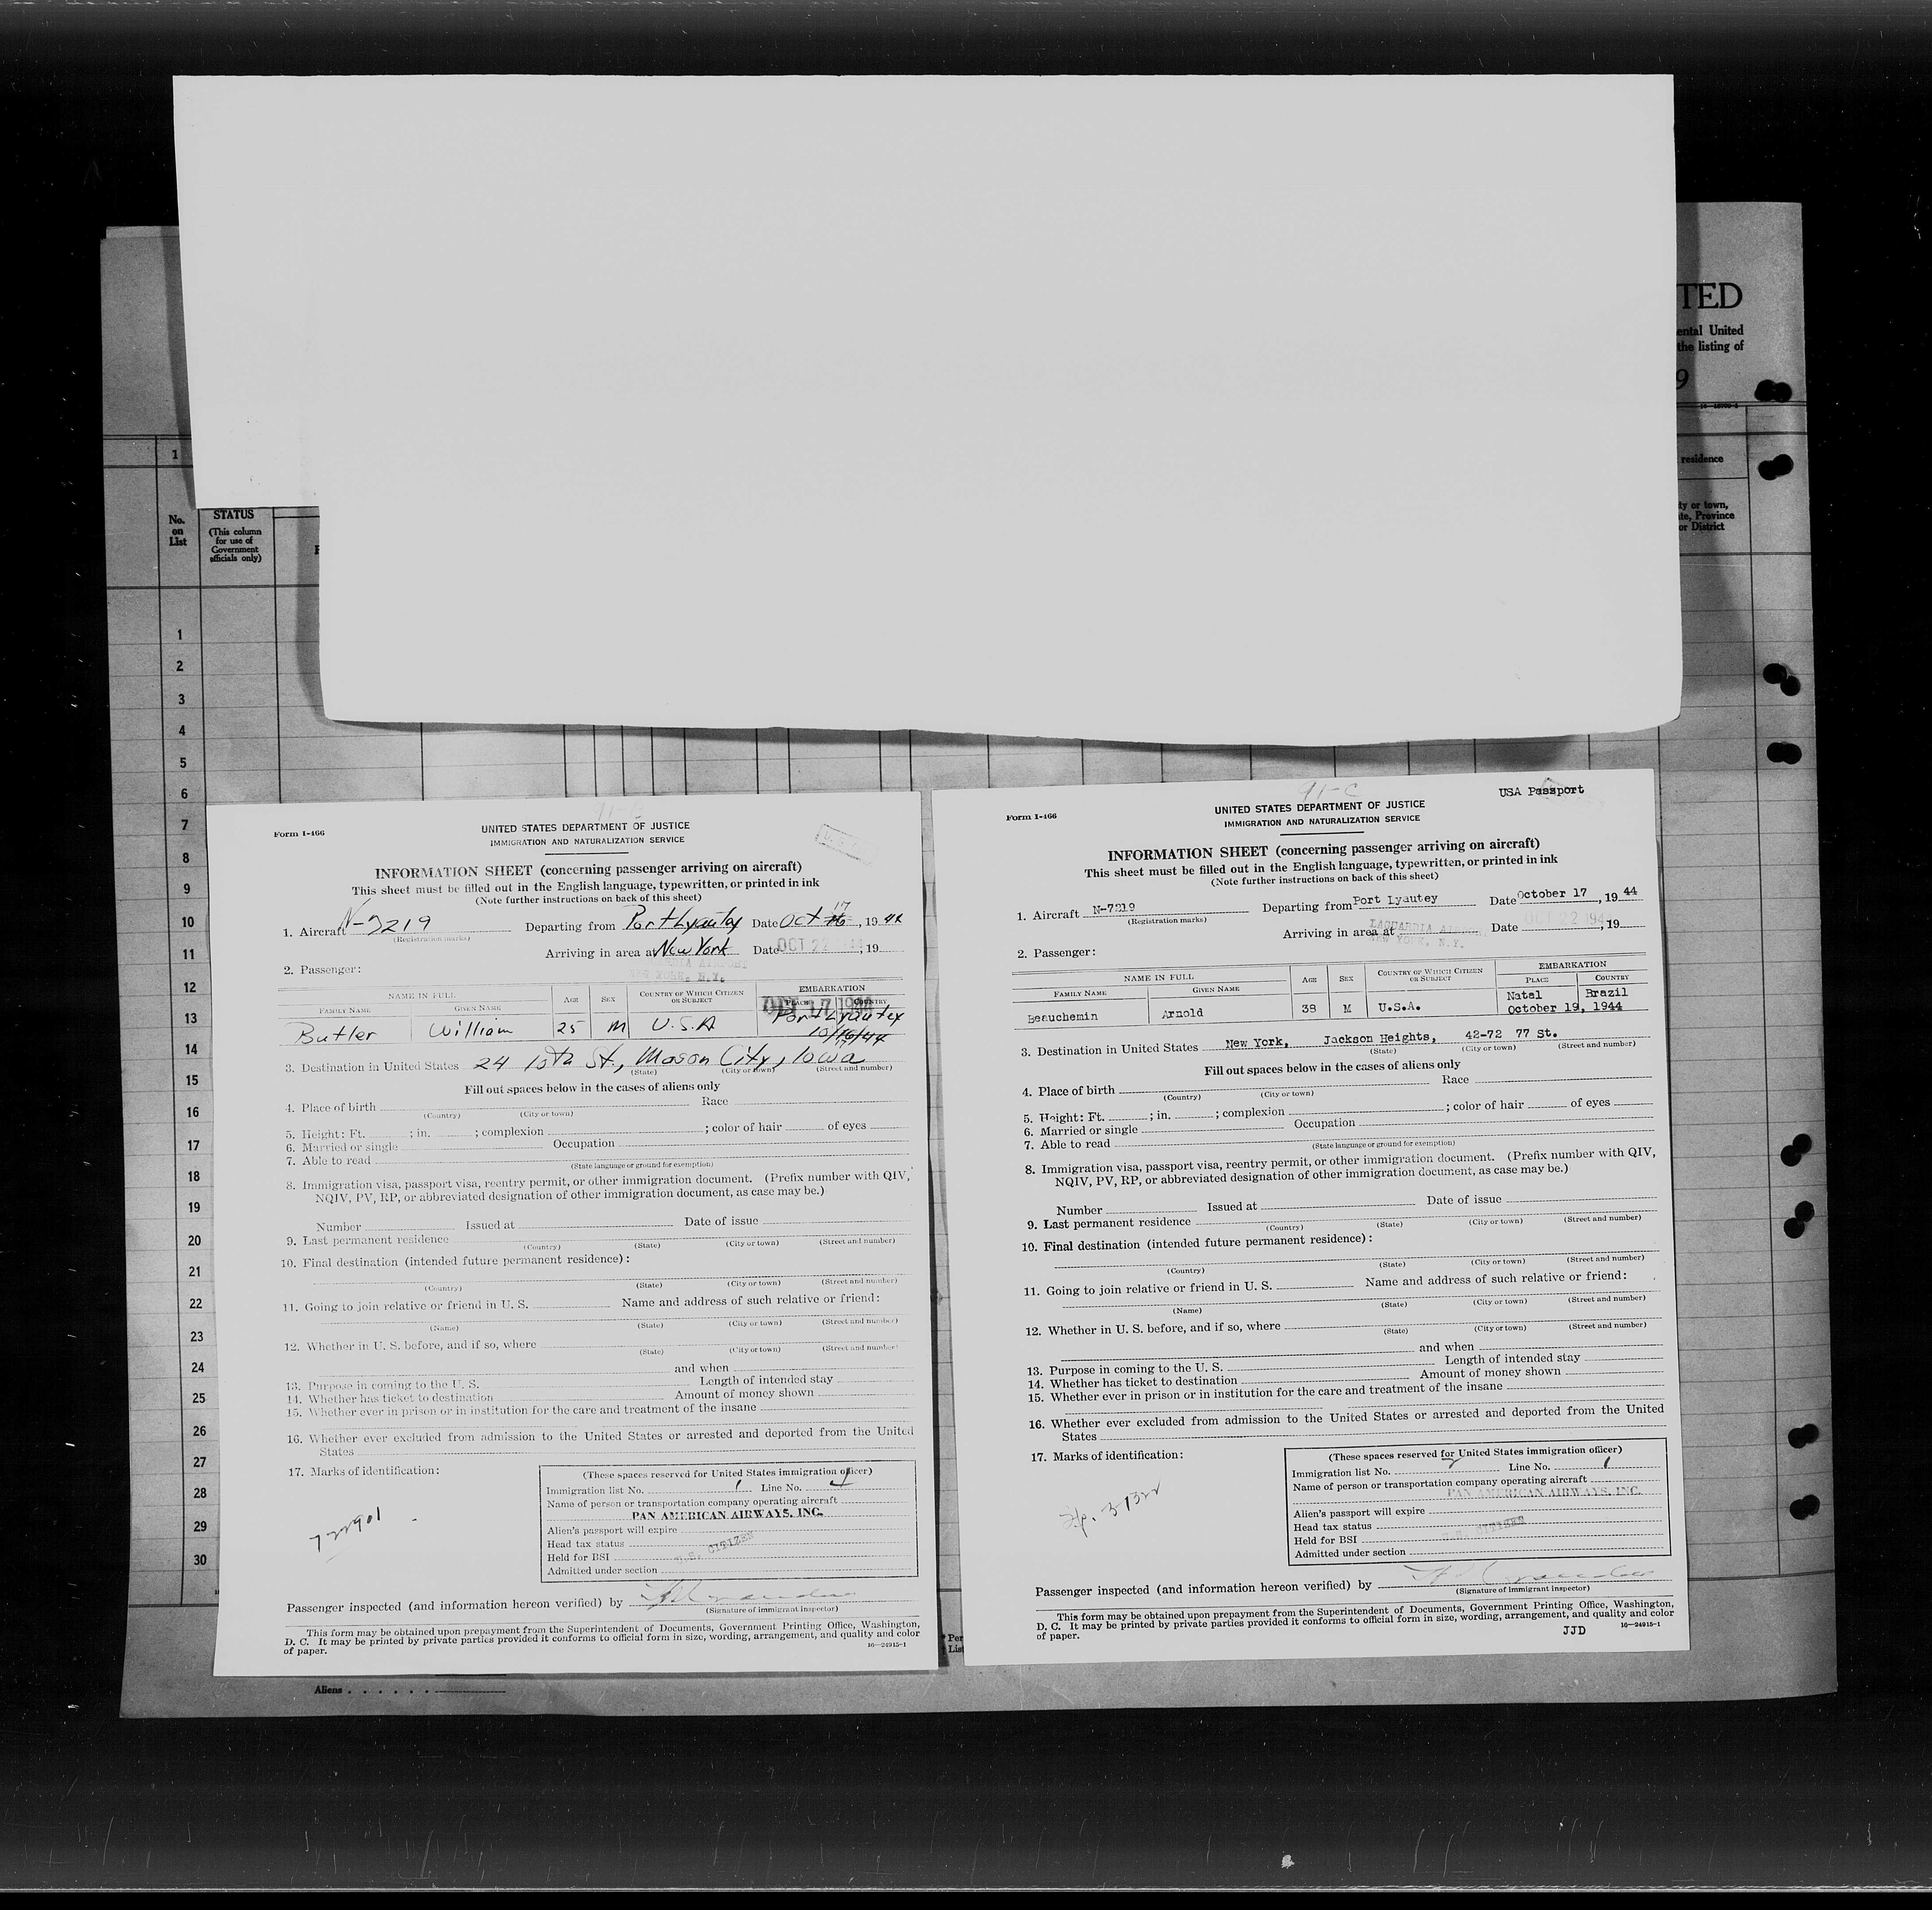 TED
ental United
the listing of
9
1
residence
No.
on
List
STATUS
(This column
for use of
Government
officials only)
ty or town,
te, Province
or District
1
2
3
4
5
6
7
8
9
10
11
12
13
14
15
16
17
18
19
20
21
22
23
24
25
26
27
28
29
30
Form I-466
UNITED STATES DEPARTMENT OF JUSTICE
IMMIGRATION AND NATURALIZATION SERVICE
INFORMATION SHEET (concerning passenger arriving on aircraft)
This sheet must be filled out in the English language, typewritten, or printed in ink
(Note further instructions on back of this sheet)
1. Aircraft N-7219 Departing from Port Lyautey Date Oct 17, 1944
(Registration marks)
Arriving in area at New York Date OCT 22 1944, 19
NEW YORK, N.Y.
2. Passenger:
NAME IN FULL AGE SEX COUNTRY OF WHICH CITIZEN OR SUBJECT EMBARKATION
FAMILY NAME GIVEN NAME PLACE COUNTRY
OCT 17 1944
Butler William 25 M U.S.A Port Lyautey
3. Destination in United States 24 10th St., Mason City, Iowa
(State) (City or town) (Street and number)
Fill out spaces below in the cases of aliens only
4. Place of birth Race
(Country) (City or town)
5. Height: Ft. ; in. ; complexion ; color of hair of eyes
6. Married or single Occupation
7. Able to read
(State language or ground for exemption)
8. Immigration visa, passport visa, reentry permit, or other immigration document. (Prefix number with QIV,
NQIV, PV, RP, or abbreviated designation of other immigration document, as case may be.)
Number Issued at Date of issue
9. Last permanent residence
(Country) (State) (City or town) (Street and number)
10. Final destination (intended future permanent residence):
(Country) (State) (City or town) (Street and number)
11. Going to join relative or friend in U. S. Name and address of such relative or friend:
(Name) (State) (City or town) (Street and number)
12. Whether in U. S. before, and if so, where
(State) (City or town) (Street and number)
and when
13. Purpose in coming to the U. S. Length of intended stay
14. Whether has ticket to destination Amount of money shown
15. Whether ever in prison or in institution for the care and treatment of the insane
16. Whether ever excluded from admission to the United States or arrested and deported from the United
States
17. Marks of identification:
722901
(These spaces reserved for United States immigration officer)
Immigration list No. 1 Line No. 1
Name of person or transportation company operating aircraft
PAN AMERICAN AIRWAYS, INC.
Alien's passport will expire
Head tax status
U.S. CITIZEN
Held for BSI
Admitted under section
Passenger inspected (and information hereon verified) by
(Signature of immigrant inspector)
This form may be obtained upon prepayment from the Superintendent of Documents, Government Printing Office, Washington,
D. C. It may be printed by private parties provided it conforms to official form in size, wording, arrangement, and quality and color
of paper.
16—24915-1
91-C
USA Passport
Form I-466
UNITED STATES DEPARTMENT OF JUSTICE
IMMIGRATION AND NATURALIZATION SERVICE
INFORMATION SHEET (concerning passenger arriving on aircraft)
This sheet must be filled out in the English language, typewritten, or printed in ink
(Note further instructions on back of this sheet)
1. Aircraft N-7219 Departing from Port Lyautey Date October 17, 1944
(Registration marks)
Arriving in area at LAGUARDIA AIRPORT Date OCT 22 194, 19
NEW YORK, N.Y.
2. Passenger:
NAME IN FULL AGE SEX COUNTRY OF WHICH CITIZEN OR SUBJECT EMBARKATION
FAMILY NAME GIVEN NAME PLACE COUNTRY
Natal Brazil
Beauchemin Arnold 38 M U.S.A. October 19, 1944
3. Destination in United States New York, Jackson Heights, 42-72 77 St.
(State) (City or town) (Street and number)
Fill out spaces below in the cases of aliens only
4. Place of birth Race
(Country) (City or town)
5. Height: Ft. ; in. ; complexion ; color of hair of eyes
6. Married or single Occupation
7. Able to read
(State language or ground for exemption)
8. Immigration visa, passport visa, reentry permit, or other immigration document. (Prefix number with QIV,
NQIV, PV, RP, or abbreviated designation of other immigration document, as case may be.)
Number Issued at Date of issue
9. Last permanent residence
(Country) (State) (City or town) (Street and number)
10. Final destination (intended future permanent residence):
(Country) (State) (City or town) (Street and number)
11. Going to join relative or friend in U. S. Name and address of such relative or friend:
(Name) (State) (City or town) (Street and number)
12. Whether in U. S. before, and if so, where
(State) (City or town) (Street and number)
and when
13. Purpose in coming to the U. S. Length of intended stay
14. Whether has ticket to destination Amount of money shown
15. Whether ever in prison or in institution for the care and treatment of the insane
16. Whether ever excluded from admission to the United States or arrested and deported from the United
States
17. Marks of identification:
(These spaces reserved for United States immigration officer)
Immigration list No. 2 Line No. 1
Name of person or transportation company operating aircraft
PAN AMERICAN AIRWAYS, INC.
Alien's passport will expire
Head tax status
U.S. CITIZEN
Held for BSI
Admitted under section
Passenger inspected (and information hereon verified) by
(Signature of immigrant inspector)
This form may be obtained upon prepayment from the Superintendent of Documents, Government Printing Office, Washington,
D. C. It may be printed by private parties provided it conforms to official form in size, wording, arrangement, and quality and color
of paper.
JJD
16—24915-1
Aliens